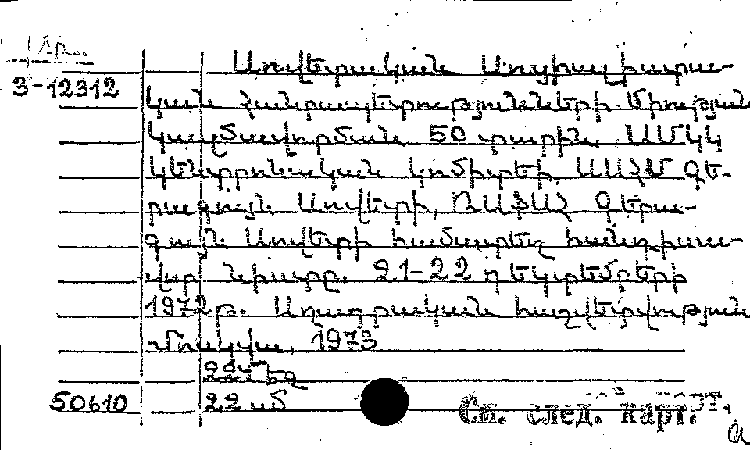 3-12312
Սովետական Սոցիալիստա-
կան Հանրապետությունների Միության
կազմավորման 50 տարին. ՍՄԿԿ
կենտրոնական կոմիտեի, ՍՍՀՄ Գե-
րագույն Սովետի, ՌՍՖՍՀ Գերա-
գույն Սովետի համատեղ հանդիսա-
վոր նիստը. 21-22 դեկտեմբերի
1972թ. Սղագրական հաշվետվություն
Մոսկվա, 1973
50610
22 սմ
См. след. карт.